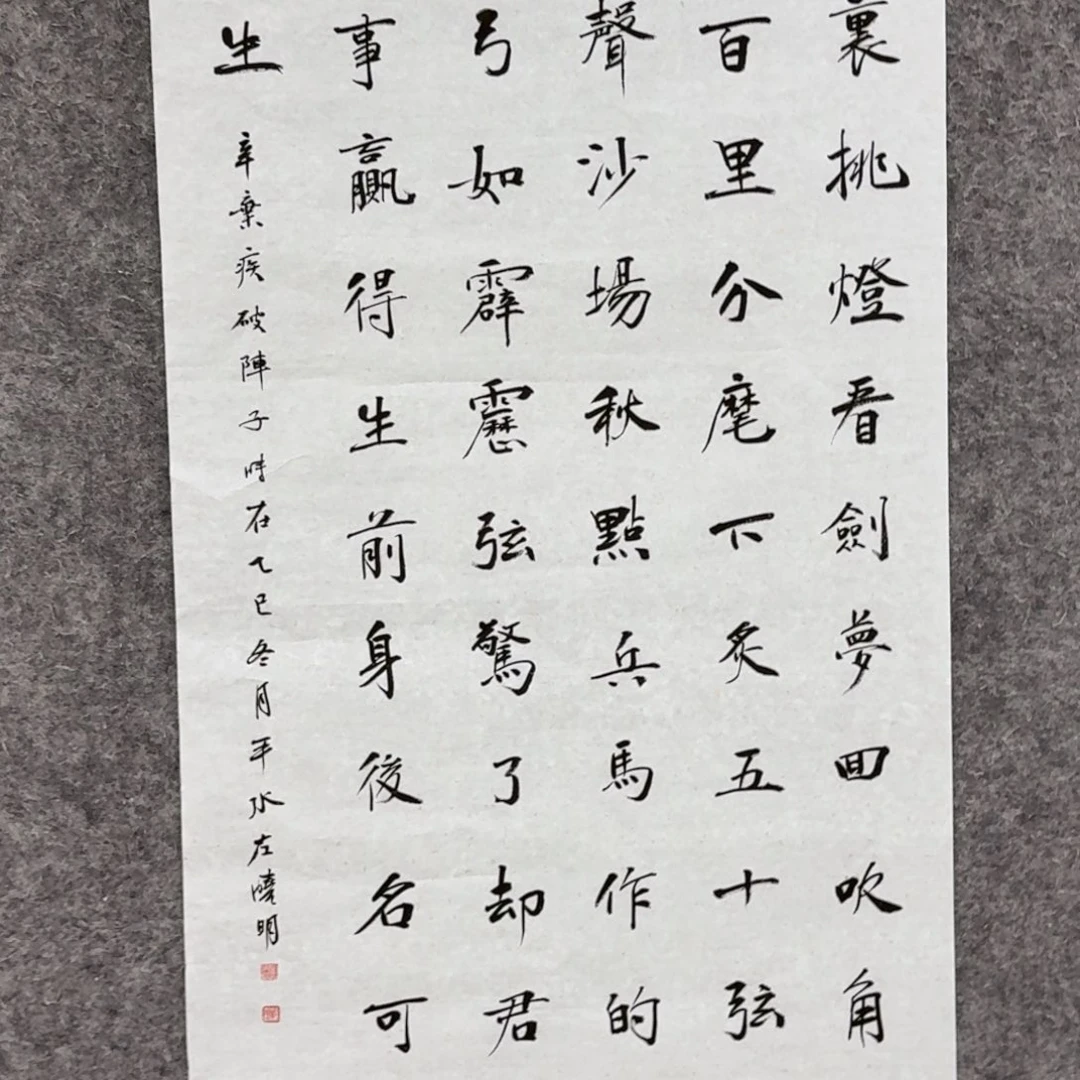 裏挑燈看劍夢回吹角
百里分麾下炙五十弦
聲沙場秋點兵馬作的
弓如霹靂弦驚了却君
事贏得生前身後名可
生
辛棄疾破陣子時在乙巳冬月平水左曉明